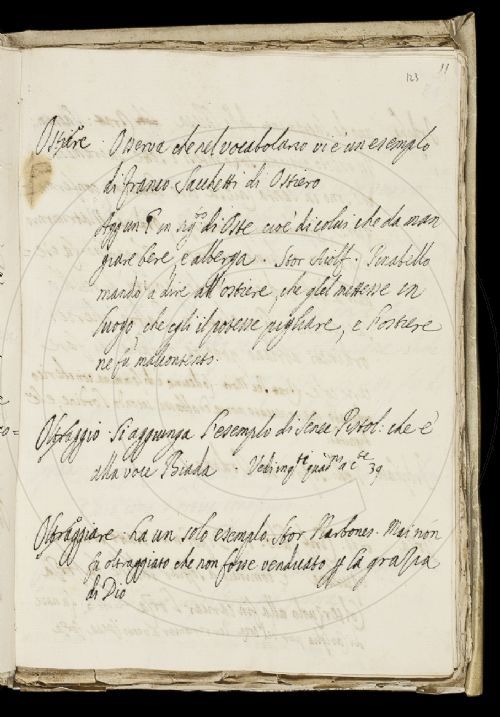 123
Ostiere Osserva che nel vocabolario vi è un esemplo
di Franco Sacchetti di Ostiero
Aggiun in sig.to di Oste cioè di colui che da man
giare bere e alberga. Stor Aiolf. Pirabello
mandò a dire all'ostiere, che gliel mettesse in
luogo che egli il potesse pigliare, e l'ostiere
ne fu malcontento.
Oltraggio Si aggiunga l'esemplo di Senec Pistol: che è
alla voce Biada. Vedi quad a c.te 39
Oltraggiare: ha un solo esemplo. Stor Narbones. Mai non
fu oltraggiato che non fosse vendicato la grazia
di Dio